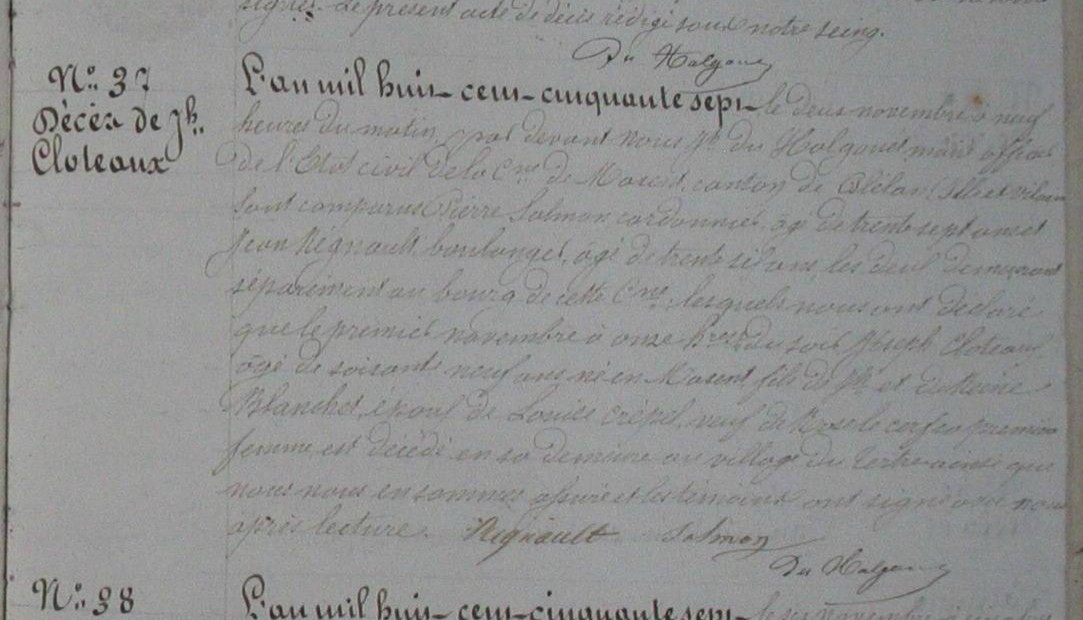 signer. Le présent acte de décès rédigé sous notre seing.
Du Halgouet
N° 37
Décès de Jh.
Cloteaux
L'an mil huit cent cinquante sept le deux novembre à neuf
heures du matin, par devant nous Jh du Halgouet maire officier
de l'Etat civil de la Cne de Maxent, canton de Plélan (Ille et vilaine
sont comparus Pierre Salmon cordonnier, agé de trente sept ans et
Jean Régnault, boulanger, âgé de trente six ans, les deux demeurant
séparément au bourg de cette Cne, lesquels nous ont déclaré
que le premier novembre à onze hres du soir Joseph Cloteaux
âgé de soixante neuf ans né en Maxent, fils de Jh et de Reine
Blanchet, époux de Louise Crépel, veuf de Rose le cerf sa première
femme, est décédé en sa demeure au village du Tertre ainsi que
nous nous en sommes assuré et les témoins ont signé avec nous
après lecture. Régnault Salmon
Du Halgouet
N° 38
L'an mil huit cent cinquante sept le six novembre à